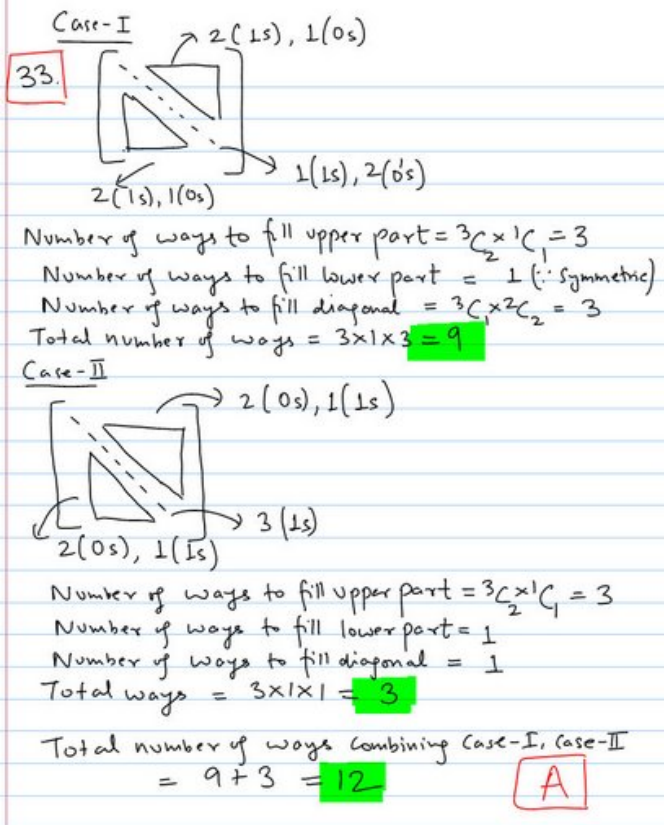 Case-I
2(1s), 1(0s)
33.
1(1s), 2(0's)
2(1s), 1(0s)
Number of ways to fill upper part = ³C₂ × ¹C₁ = 3
Number of ways to fill lower part = 1 (∵ Symmetric)
Number of ways to fill diagonal = ³C₁ × ²C₂ = 3
Total number of ways = 3×1×3 = 9
Case-II
2(0s), 1(1s)
3(1s)
2(0s), 1(1s)
Number of ways to fill upper part = ³C₂ × ¹C₁ = 3
Number of ways to fill lower part = 1
Number of ways to fill diagonal = 1
Total ways = 3×1×1 = 3
Total number of ways Combining Case-I, Case-II
= 9+3 = 12
A